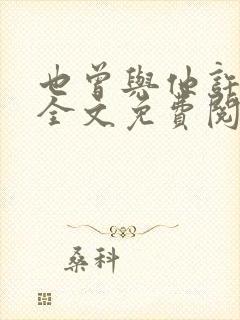 也曾與他
全文免費閱
桑科